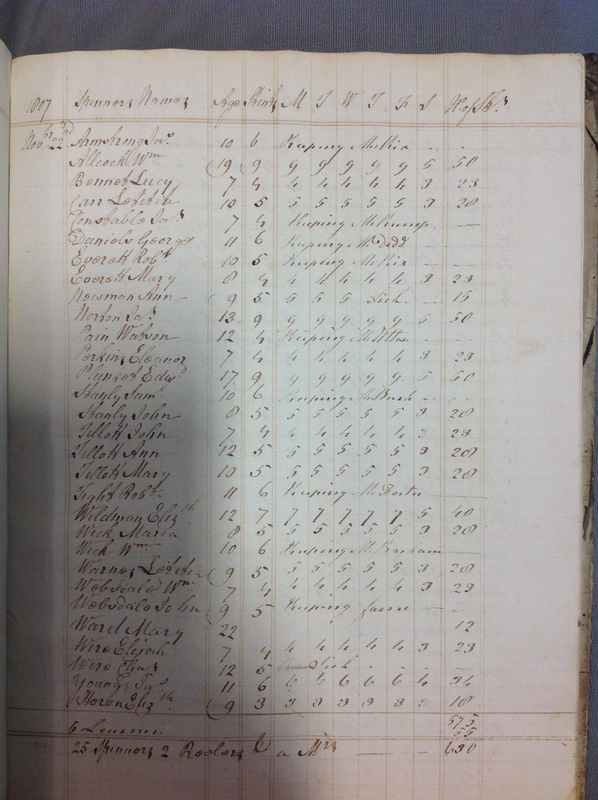 1807 Spinners Names Age Stint M T W T F S No of Sks
Novr 22d Armstrong Jas 10 6 Keeping - -
Allcock Wm 19 9 9 9 9 9 9 5 50
Bennet Lucy 7 4 4 4 4 4 4 3 23
Carr Letitia 10 5 5 5 5 5 5 3 28
Constable Jas 7 4 Keeping —
Daniels George 11 6 Keeping Mr Dadd
Everett Robt 10 5 Keeping
Everett Mary 8 4 4 4 4 4 4 3 23
Newman Ann 9 5 5 5 5 Sick — 15
Norton Jas 13 9 9 9 9 9 9 5 50
Pain Watson 12 4 Keeping
Perkins Eleanor 7 4 4 4 4 4 4 3 23
Edwd 17 9 9 9 9 9 9 5 50
Stanly Saml 10 6 Keeping
Stanly John 8 5 5 5 5 5 5 3 28
Tillott John 7 4 4 4 4 4 4 3 23
Tillott Ann 12 5 5 5 5 5 5 3 28
Tillott Mary 10 5 5 5 5 5 5 3 28
Tight Robt 11 6 Keeping Mr Foster —
Wildman Elizth 12 7 7 7 7 7 7 5 40
Wick Maria 8 5 5 5 5 5 5 3 28
Wick Wm 10 6 Keeping
Warnes Letitia 9 5 5 5 5 5 5 3 28
Websdale Wm 7 4 4 4 4 4 4 3 23
Websdale John 9 5 Keeping —
Ward Mary 22 12
Wire Elijah 7 4 4 4 4 4 4 3 23
Wire Chas 12 5 Sick - - -
Young Jas 11 6 6 6 6 6 6 4 34
Horon Elizth 9 3 3 3 3 3 3 3 18
575
5 Learners 55
25 Spinners 2 Reelers & a Mrs — — — 630